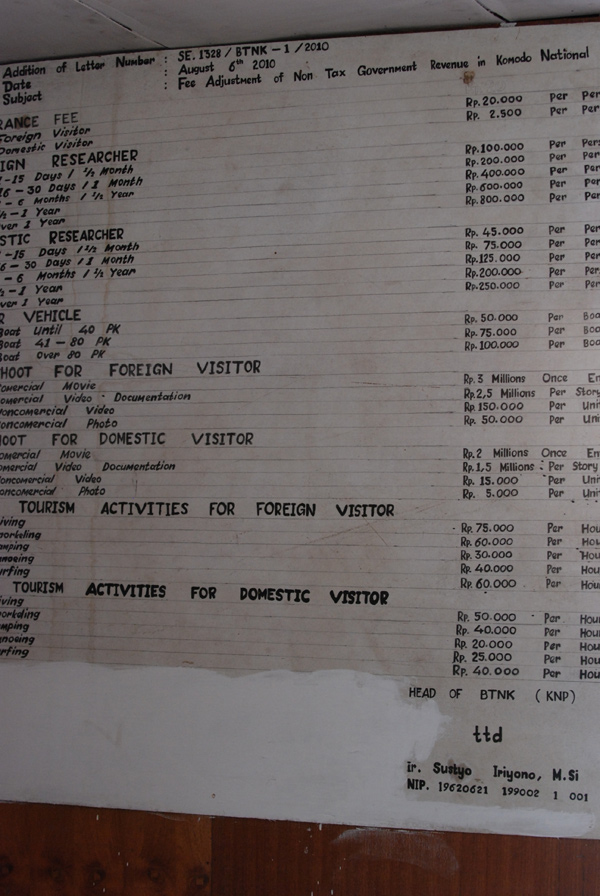 Addition of Letter Number : SE. 1328 / BTNK - 1 / 2010
Date : August 6th 2010
Subject : Fee Adjustment of Non Tax Government Revenue in Komodo National
RANCE FEE
Foreign Visitor Rp. 20.000 Per Per
Domestic Visitor Rp. 2.500 Per Per
IGN RESEARCHER
-15 Days / 1/2 Month Rp.100.000 Per Per
16 - 30 Days / 1 Month Rp.200.000 Per Per
- 6 Months / 1/2 Year Rp.400.000 Per Per
1/2 - 1 Year Rp.600.000 Per Per
ver 1 Year Rp.800.000 Per Per
STIC RESEARCHER
-15 Days / 1/2 Month Rp. 45.000 Per Per
6 - 30 Days / 1 Month Rp. 75.000 Per Per
- 6 Months / 1/2 Year Rp.125.000 Per Per
1/2 - 1 Year Rp.200.000 Per Per
ver 1 Year Rp.250.000 Per Per
R VEHICLE
Boat Until 40 PK Rp. 50.000 Per Boa
Boat 41 - 80 PK Rp. 75.000 Per Boa
Boat Over 80 PK Rp.100.000 Per Boa
HOOT FOR FOREIGN VISITOR
omercial Movie Rp.3 Millions Once En
omercial Video Documentation Rp.2,5 Millions Per Story
oncomercial Video Rp.150.000 Per Uni
oncomercial Photo Rp. 50.000 Per Uni
OOT FOR DOMESTIC VISITOR
omercial Movie Rp.2 Millions Once En
omercial Video Documentation Rp.1,5 Millions Per Story
oncomercial Video Rp. 15.000 Per Uni
oncomercial Photo Rp. 5.000 Per Uni
TOURISM ACTIVITIES FOR FOREIGN VISITOR
iving Rp. 75.000 Per Hou
norkeling Rp. 60.000 Per Hou
amping Rp. 30.000 Per Hou
anoeing Rp. 40.000 Per Hou
urfing Rp. 60.000 Per Hou
TOURISM ACTIVITIES FOR DOMESTIC VISITOR
iving Rp. 50.000 Per Hou
norkling Rp. 40.000 Per Hou
amping Rp. 20.000 Per Hou
anoeing Rp. 25.000 Per Hou
rfing Rp. 40.000 Per Hou
HEAD OF BTNK (KNP)
ttd
ir. Sustyo Iriyono, M.Si
NIP. 19620621 199002 1 001